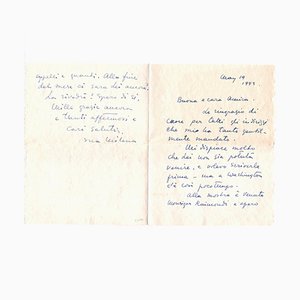 May 14
1953
Buona e cara Amica,
La ringrazio di
cuore per tutti gli indirizzi
che mi ha tanto gentil-
mente mandato.
Mi dispiace molto
che Lei non sia potuta
venire, e volevo scriverle
prima - ma a Washington
c'è così poco tempo.
Alla mostra è venuto
Monsignor Raimondi e spero
e quanti. Alla fine
del mese ci sarà lei ancora?
La rivedrò? Spero di sì.
Mille grazie ancora
e tanti affettuosi e
cari saluti,
sua Milena